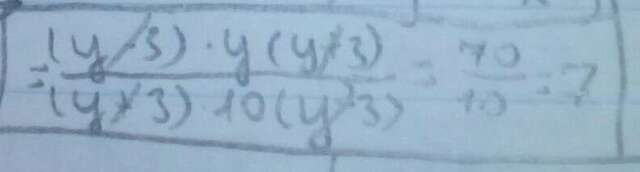 = (y-3) · y(y+3) / (y+3) · 10(y-3) = 70 / 10 = 7